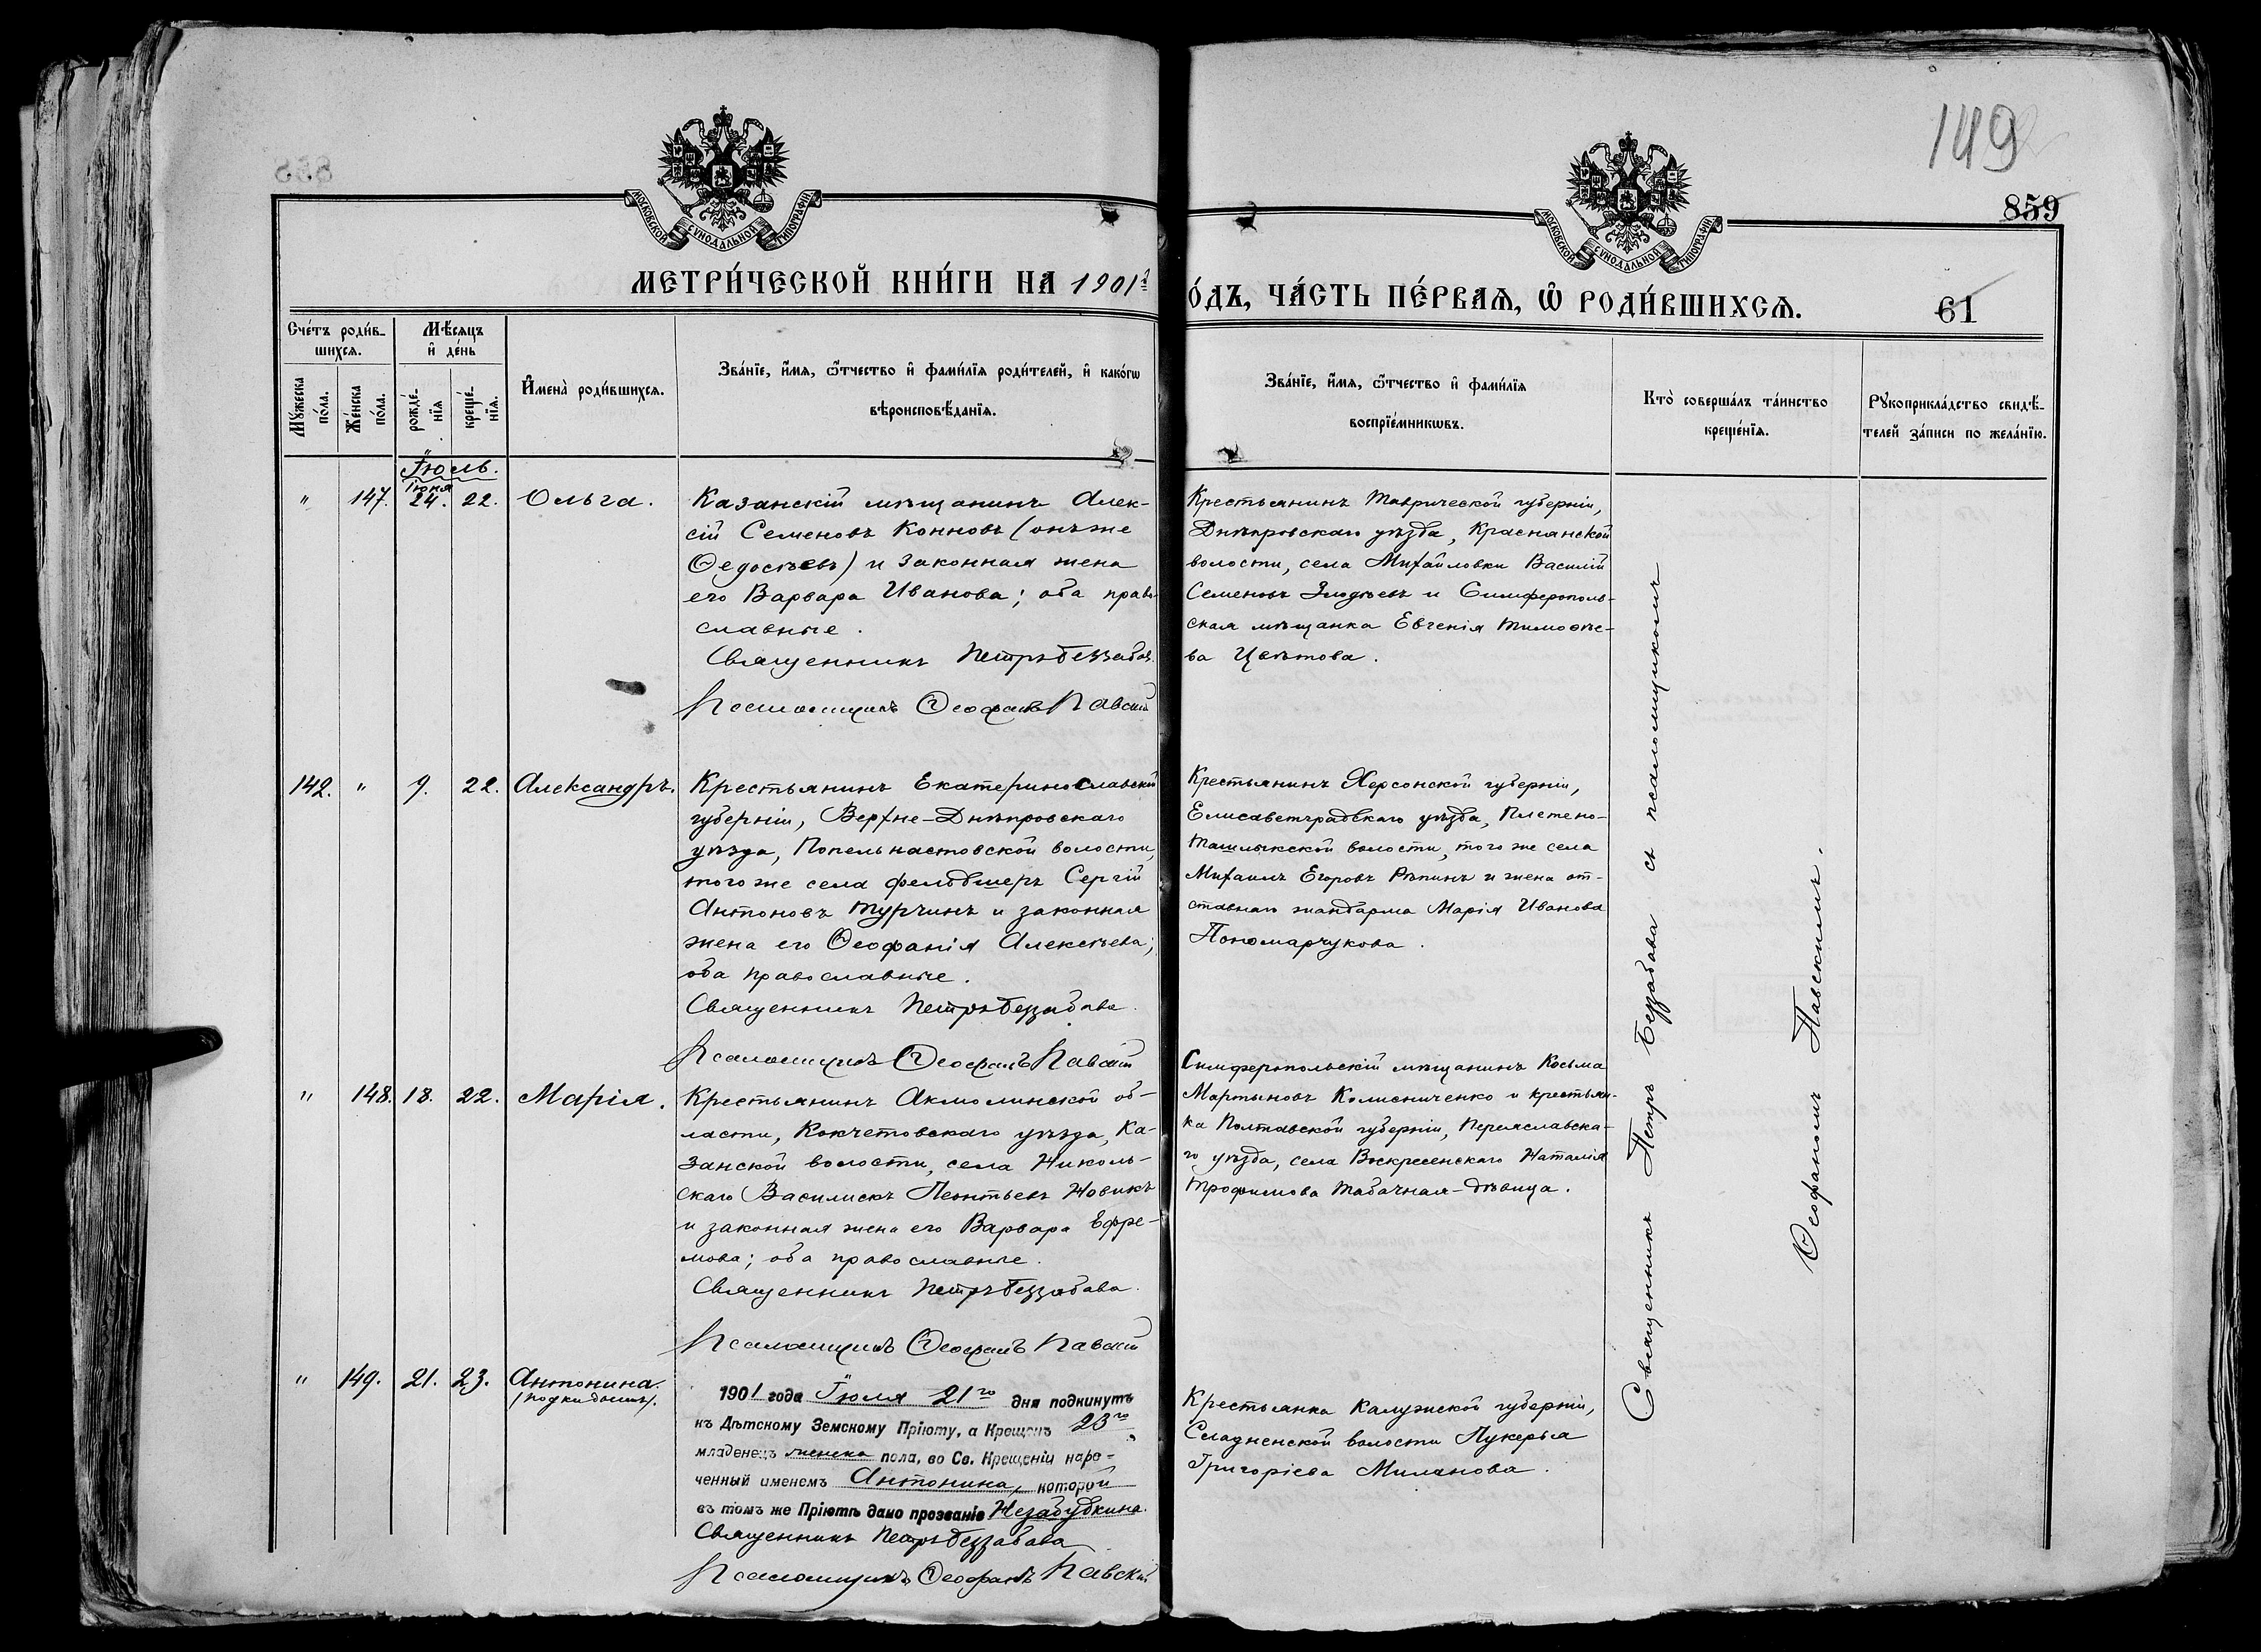 149
859
МОСКОВСКОЙ СѴНОДАЛЬНОЙ ТИПОГРАФІИ
МОСКОВСКОЙ СѴНОДАЛЬНОЙ ТИПОГРАФІИ
МЕТРИ́ЧЕСКОЙ КНИ́ГИ НА 1901 г
О́ДЪ, ЧА́СТЬ ПЕ́РВАѦ, Ѽ РОДИ́ВШИХСѦ.
61
Сче́тъ роди́в-
шихсѧ.
Мѣ́сѧцъ
и҆ де́нь
Мꙋ́жеска
по́ла.
Же́нска
по́ла.
рожде́-
нїѧ
креще́-
нїѧ.
И҆мена̀ роди́вшихсѧ.
Зва́нїе, и҆́мѧ, ѻ҆́тчество и҆ фами́лїѧ роди́телей, и҆ како́гѡ
вѣроисповѣ́данїѧ.
Зва́нїе, и҆́мѧ, ѻ҆́тчество и҆ фами́лїѧ
воспрїе́мникѡвъ.
Кто̀ соверша́лъ та́инство
креще́нїѧ.
Рꙋкоприкла́дство свидѣ́-
телей за́писи по жела́нїю.
Іюль.
Іюня
" 147. 24. 22. Ольга.
Казанскій мѣщанинъ Алек-
сій Семеновъ Конновъ (онъ же
Ѳедосѣевъ) и законная жена
его Варвара Иванова; оба право-
славные.
Священникъ Петръ Беззабав.
Псаломщикъ Ѳеофанъ Павскій
Крестьянинъ Таврической губерніи,
Днѣпровскаго уѣзда, Краснянской
волости, села Михайловки Василій
Семеновъ Злодѣевъ и Симферополь-
ская мѣщанка Евгенія Тимоѳее-
ва Цвѣтова.
142. " 9. 22. Александръ.
Крестьянинъ Екатеринославской
губерніи, Верхне-Днѣпровскаго
уѣзда, Попельнастовской волости,
того же села фельдшеръ Сергій
Антоновъ Турчинъ и законная
жена его Ѳеофанія Алексѣева;
оба православные.
Священникъ Петръ Беззабава.
Псаломщикъ Ѳеофанъ Павскій
Крестьянинъ Херсонской губерніи,
Елисаветградскаго уѣзда, Плетено-
Ташлыкской волости, того же села
Михаилъ Егоровъ Рѣпинъ и жена от-
ставнаго жандарма Марія Иванова
Пономарчукова.
" 148. 18. 22. Марія.
Крестьянинъ Акмолинской об-
ласти, Кокчетовскаго уѣзда, Ка-
занской волости, села Николь-
скаго Василискъ Леонтьевъ Новикъ
и законная жена его Варвара Ефре-
мова; оба православные.
Священникъ Петръ Беззабава.
Псаломщикъ Ѳеофанъ Павскій
Симферопольскій мѣщанинъ Косьма
Мартыновъ Колисниченко и крестьян-
ка Полтавской губерніи, Переяславска-
го уѣзда, села Воскресенскаго Наталія
Трофимова Табачная-дѣвица.
" 149. 21. 23. Антонина.
(подкидышъ).
1901 года Іюля 21го дня подкинутъ
къ Дѣтскому Земскому Пріюту, а Крещенъ 23го
младенецъ женска пола, во Св. Крещеніи наре-
ченный именемъ Антонина, которой
въ томъ же Пріютѣ дано прозваніе Незабудкина.
Священникъ Петръ Беззабава
Псаломщикъ Ѳеофанъ Павскій
Крестьянка Калужской губерніи,
Сладненской волости Лукерья
Григоріева Миланова.
Священникъ Петръ Беззабава съ псаломщикомъ
Ѳеофаномъ Павскимъ.